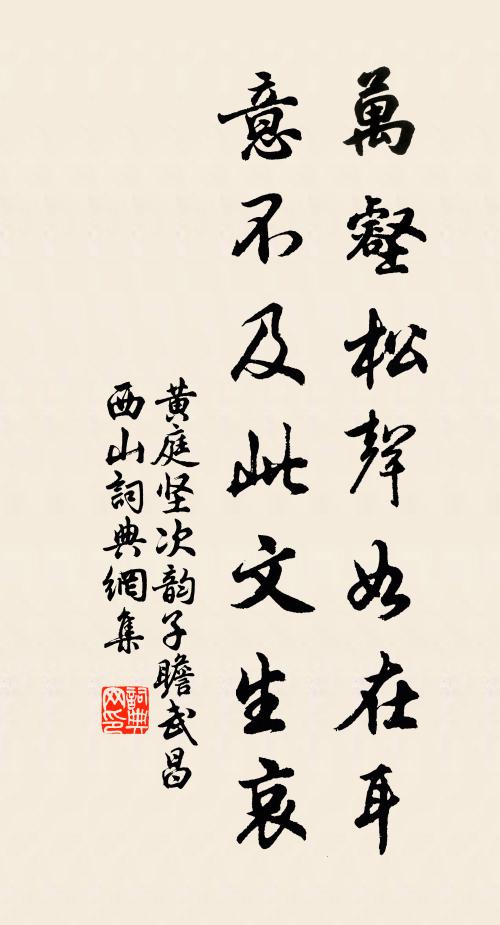 萬壑松聲如在耳
意不及此文生哀
黄庭坚次韵子瞻武昌
西山詞典網集
詞典網印